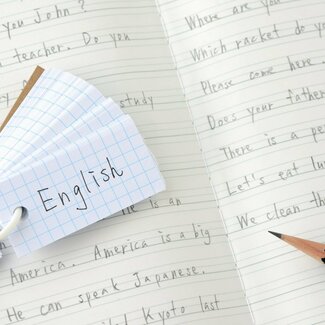 you John?
teacher. Do you
study
English
He is an
America. America is a big
He can speak Japanese.
Kyoto last
Where are you
Which racket do yo
Please come here
Does your father
There is a pe
Let's eat lu
We clean th